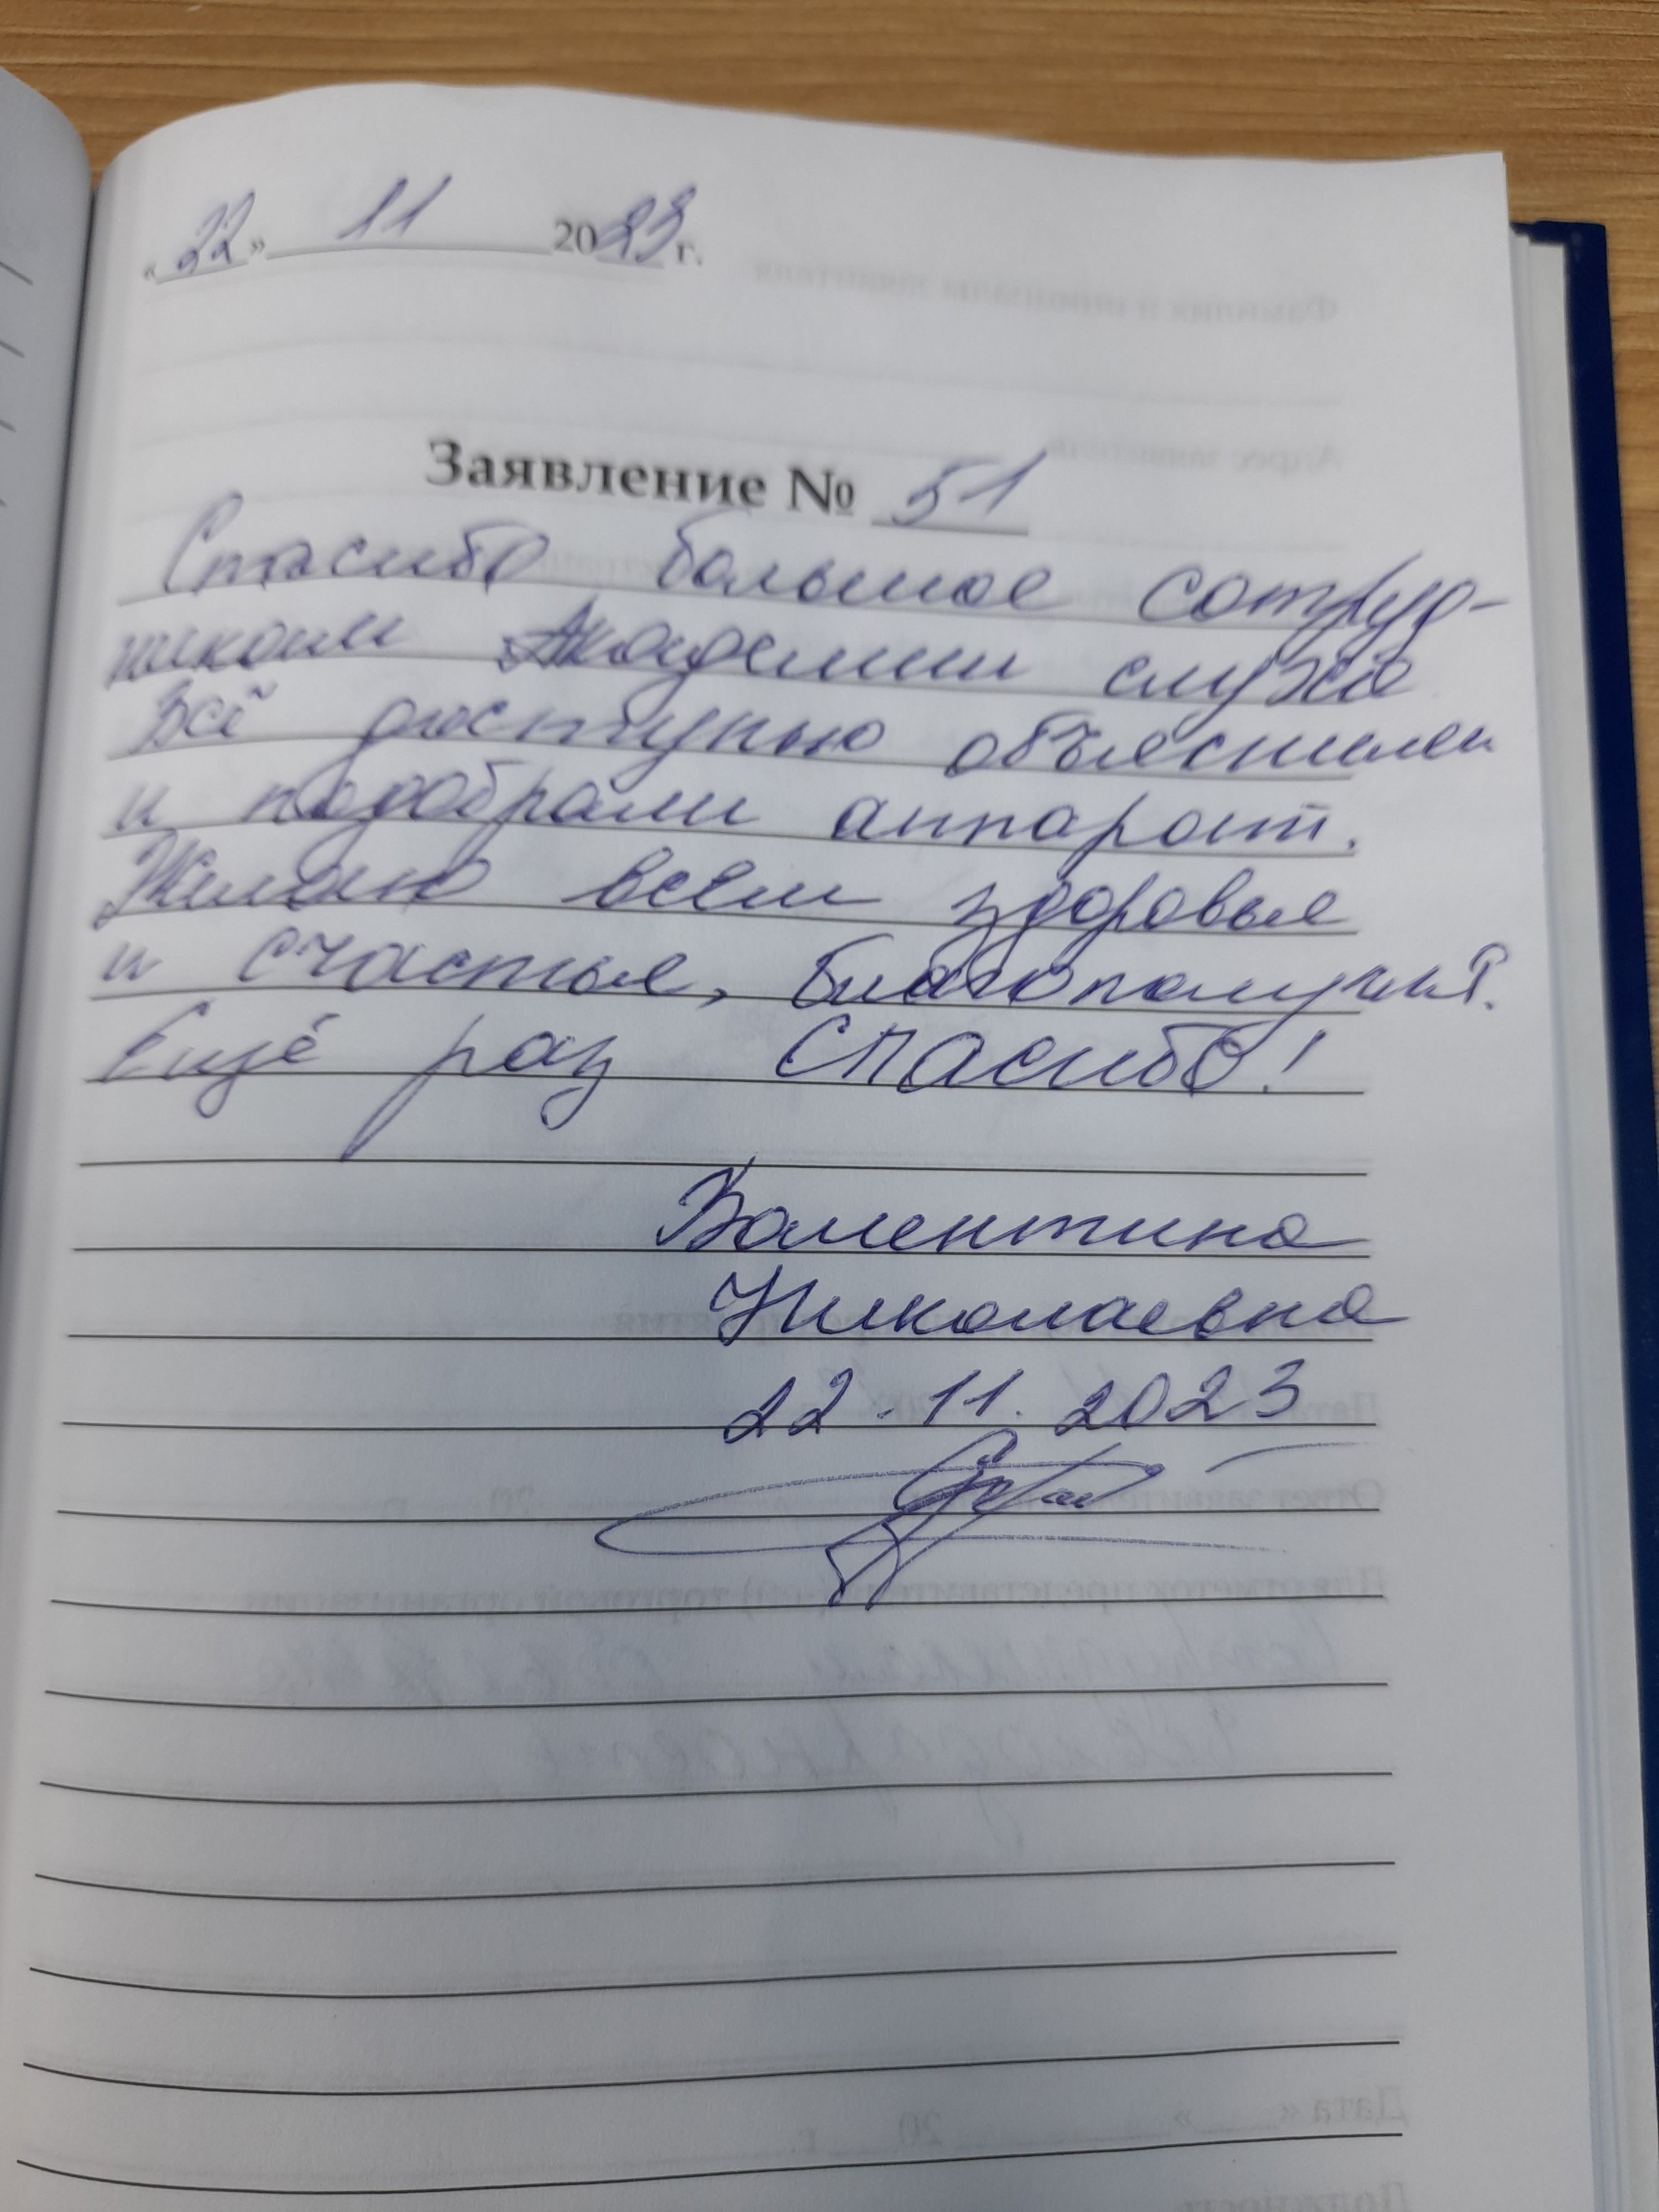 «22» 11 2023 г.
Заявление № 51
Спасибо большое сотруд-
никам Академии слуха
Всё доступно объяснили
и подобрали аппарат.
Желаю всем здоровье
и счастье, благополучия.
Ещё раз Спасибо!
Валентина
Николаевна
22.11.2023